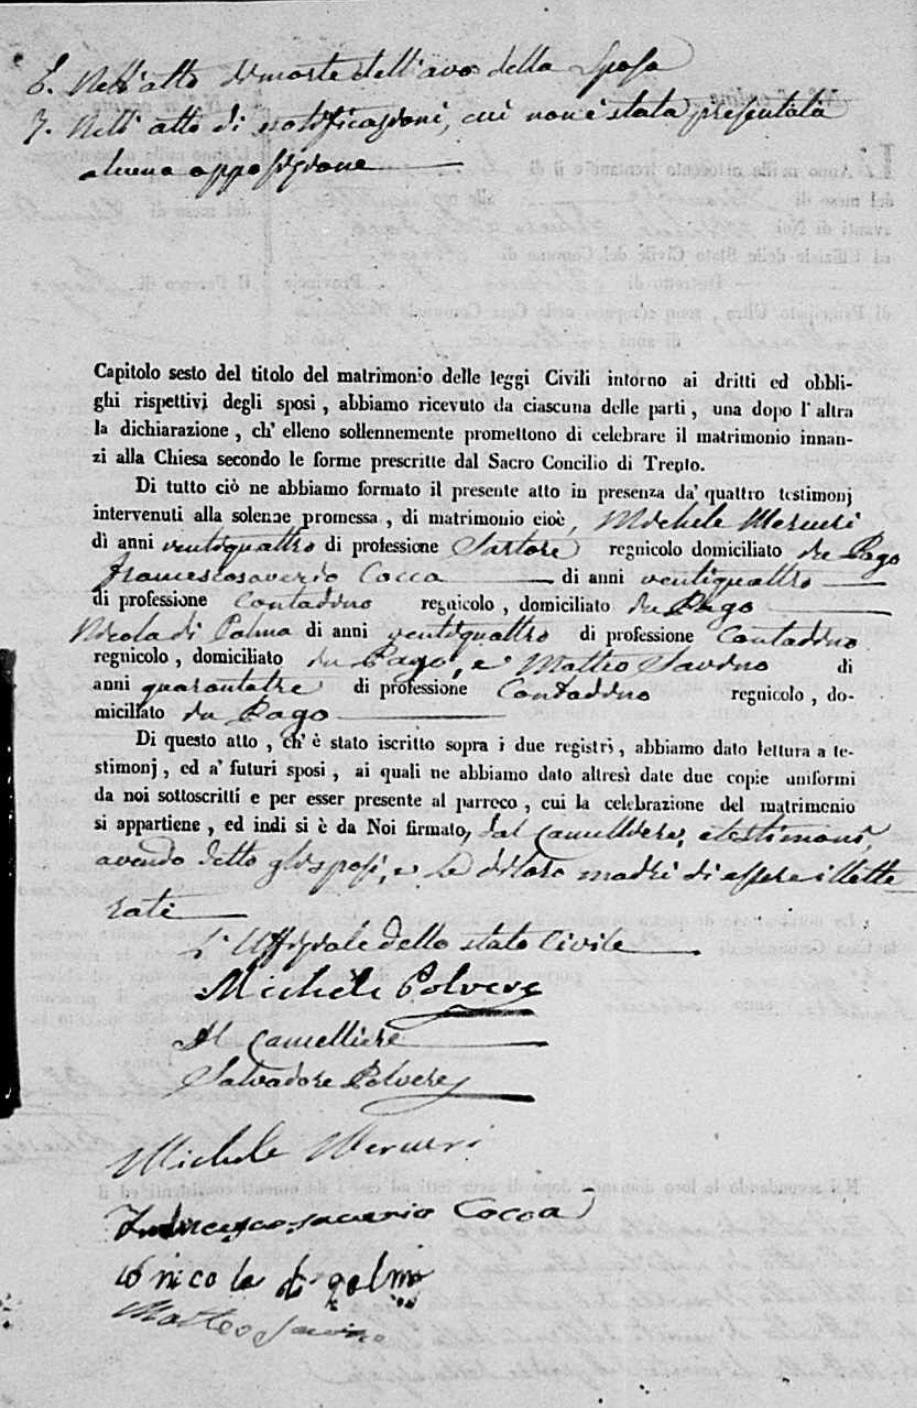 6. Nell'atto di morte dell'avo della Sposa
7. Nell'atto di notificazioni, cui non è stata presentata
alcuna opposizione
Capitolo sesto del titolo del matrimonio delle leggi Civili intorno ai dritti ed obbli-
ghi rispettivi degli sposi, abbiamo ricevuto da ciascuna delle parti, una dopo l'altra
la dichiarazione, ch'elleno sollennemente promettono di celebrare il matrimonio innan-
zi alla Chiesa secondo le forme prescritte dal Sacro Concilio di Trento.
Di tutto ciò ne abbiamo formato il presente atto in presenza da' quattro testimonj
intervenuti alla solenne promessa, di matrimonio cioè, Michele Mercuri
di anni ventiquattro di professione Sartore regnicolo domiciliato in Pago
Francescosaverio Cocca di anni ventiquattro
di professione Contadino regnicolo, domiciliato in Pago
Nicola di Palma di anni ventiquattro di professione Contadino
regnicolo, domiciliato in Pago, e Matteo Savino di
anni quarantatre di professione Contadino regnicolo, do-
miciliato in Pago
Di questo atto, ch'è stato iscritto sopra i due registri, abbiamo dato lettura a te-
stimonj, ed a' futuri sposi, ai quali ne abbiamo dato altresì date due copie uniformi
da noi sottoscritti e per esser presente al parroco, cui la celebrazione del matrimonio
si appartiene, ed indi si è da Noi firmato, dal Cancelliere, e testimoni,
avendo detto gli sposi, e le di loro madri di essere illette
rati
L'Uffiziale dello stato Civile
Michele Polvere
Il Cancelliere
Salvadore Polvere
Michele Mercuri
Francesco saverio Cocca
io nicola di palma
Matteo Savino